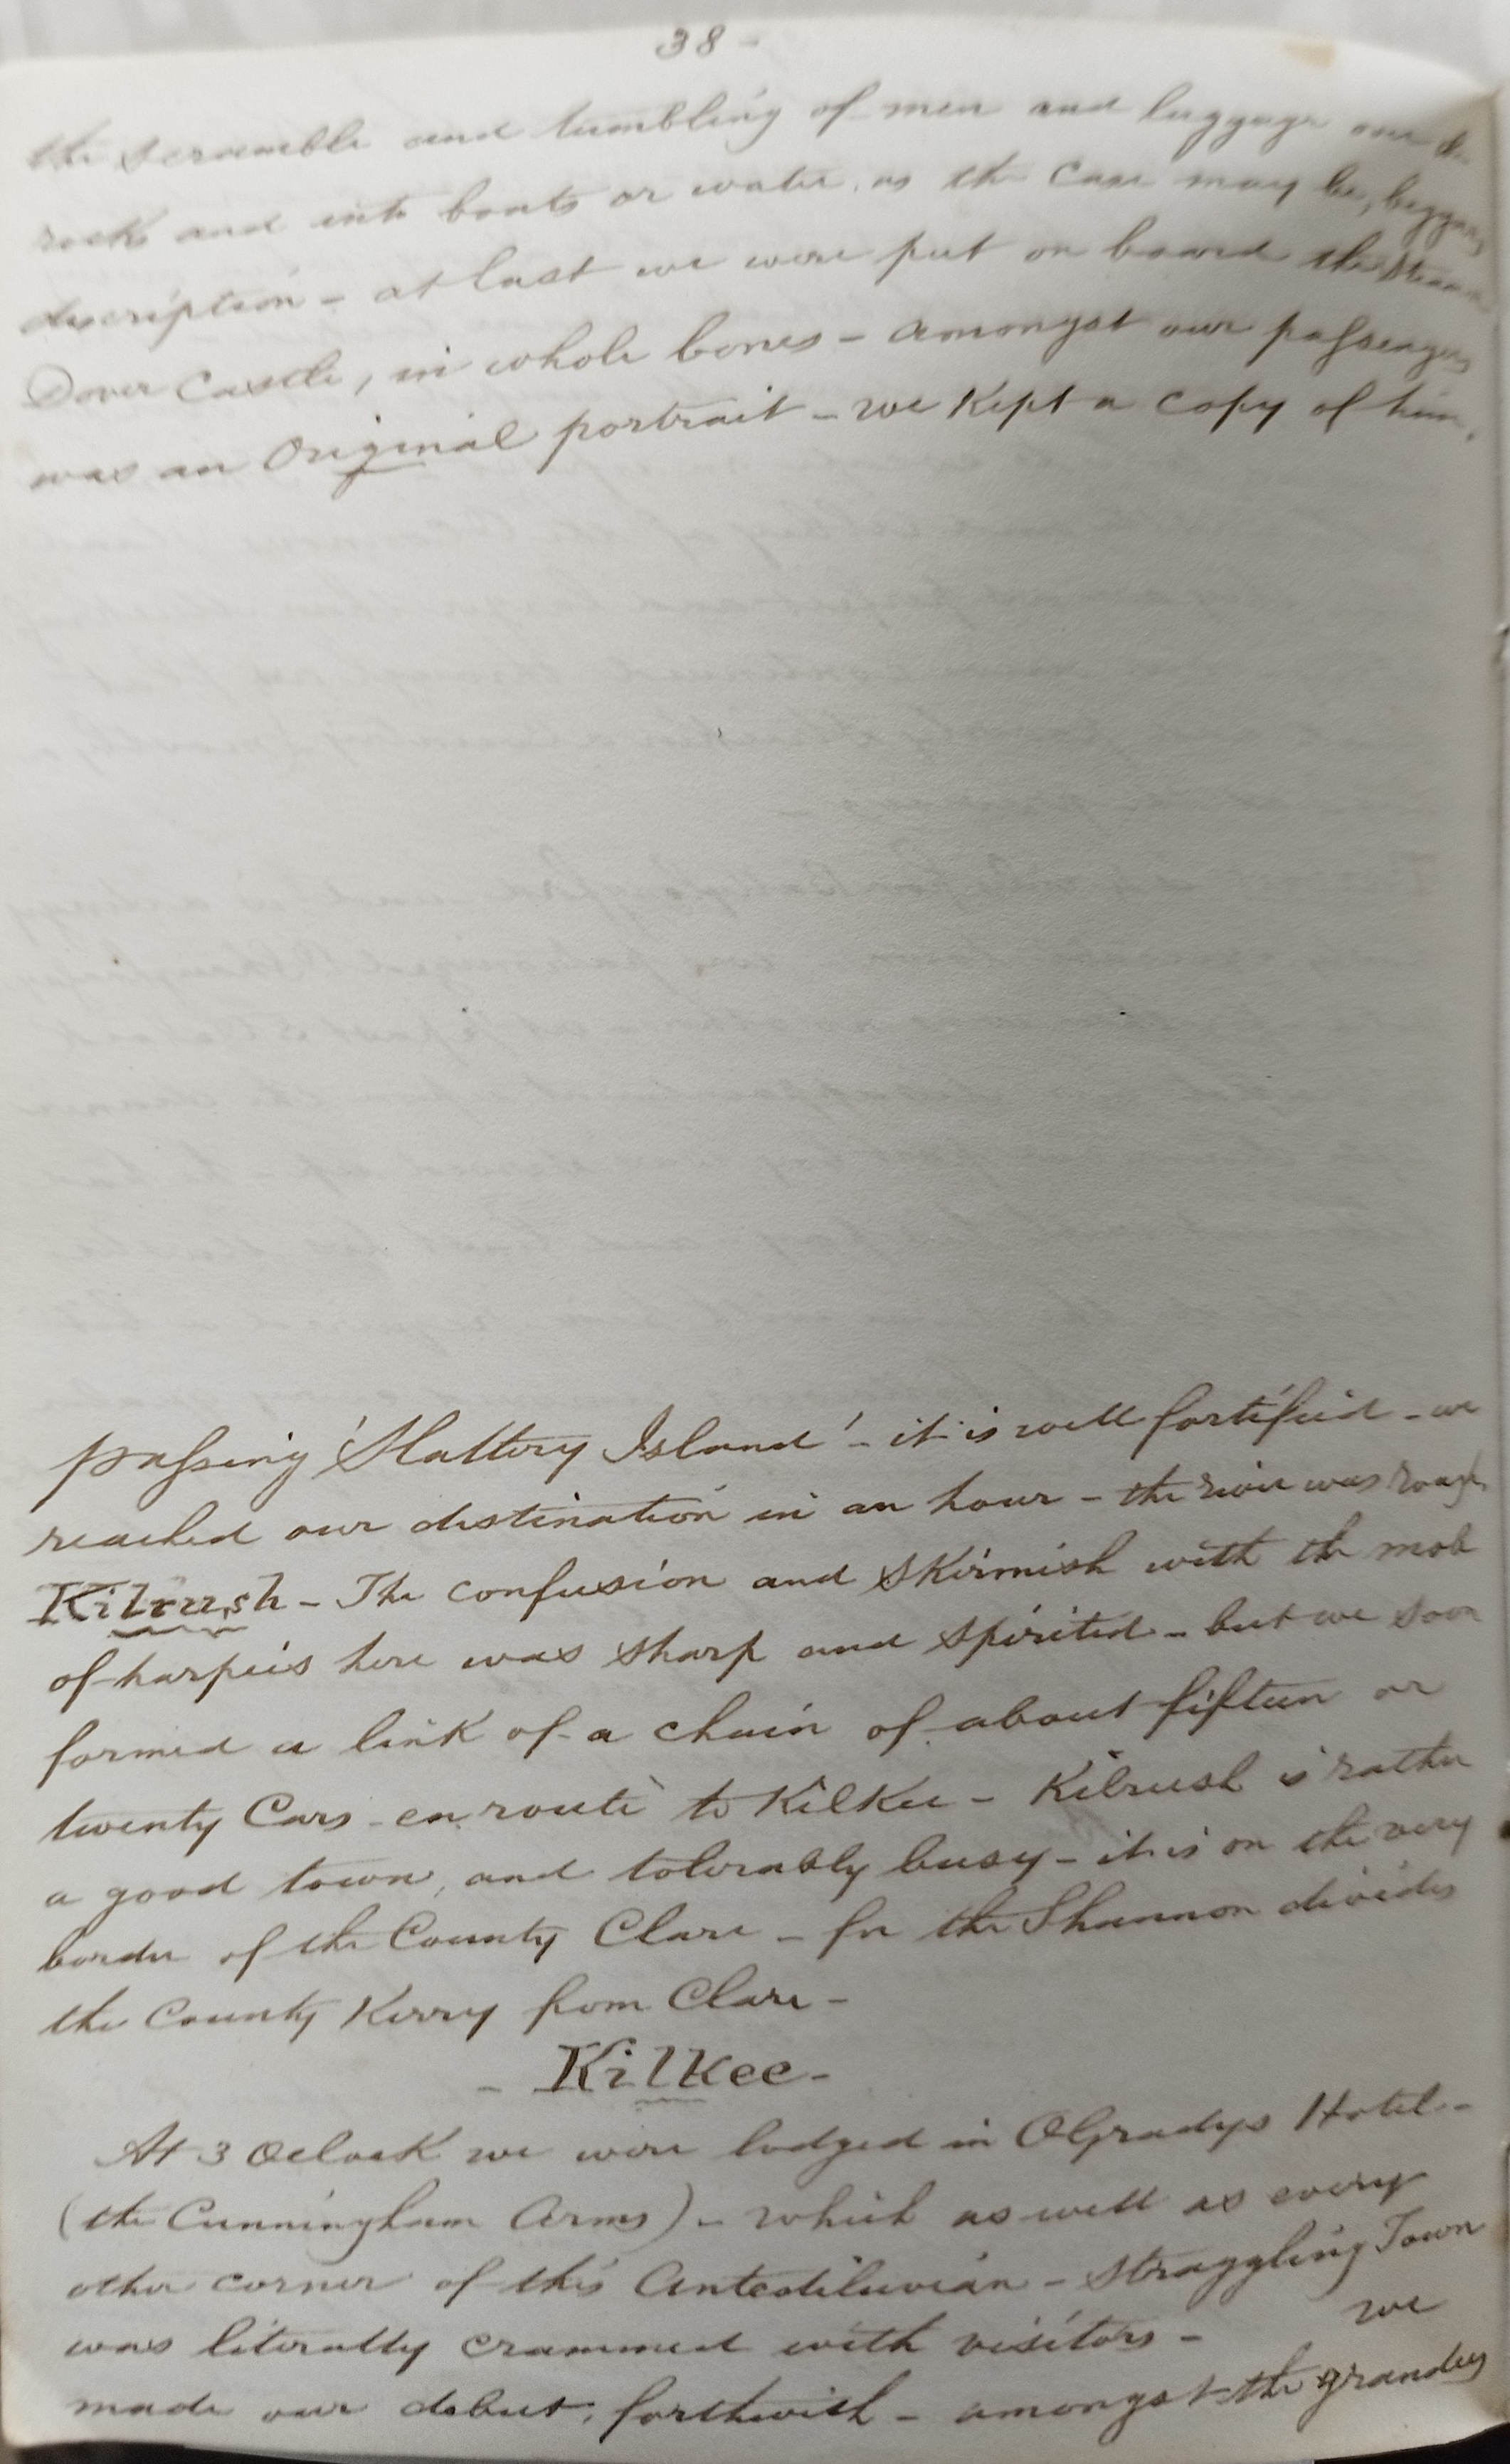 38 -
the scramble and tumbling of men and luggage over the
rocks and into boats or water, as the case may be, beggars
discription - at last we were put on board the Steamer
Dover Castle, in whole bones - amongst our passengers
was an Original portrait - we Kept a copy of him.
passing 'Slattery Island' - it is well fortified - we
reached our distination in an hour - the river was rough
Kilrush - The confusion and skirmish with the mob
of harpies here was sharp and spirited - but we soon
formed a link of a chain of about fifteen or
twenty Cars - en route to KilKee - Kilrush is rather
a good town, and tolerably busy - it is on the very
border of the County Clare - for the Shannon divides
the County Kerry from Clare -
- KilKee -
At 3 Oclock we were lodged in OGradys Hotel -
(the Cunningham Arms) - which as well as every
other corner of this Antediluvian - Straggling Town
was literally crammed with visitors - we
made our debut, forthwith - amongst the grandees